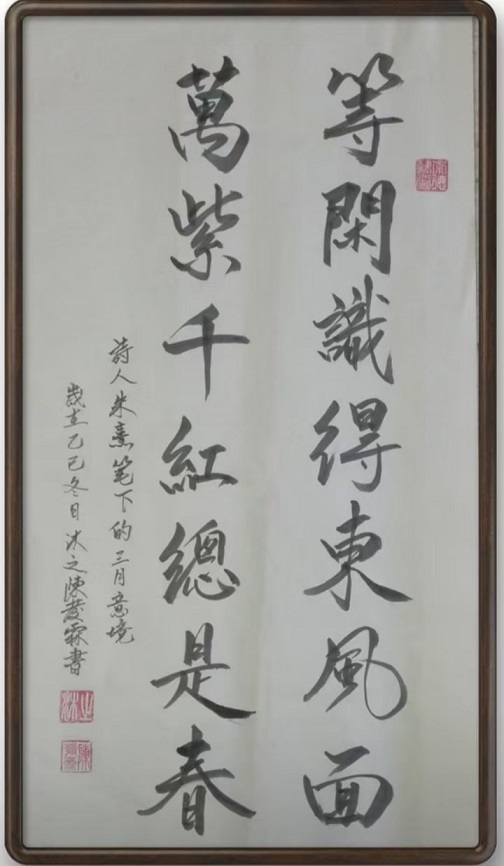 等閑識得東風面
萬紫千紅總是春
詩人朱熹笔下的三月意境
歲在乙巳冬日沐之陳慶霖書